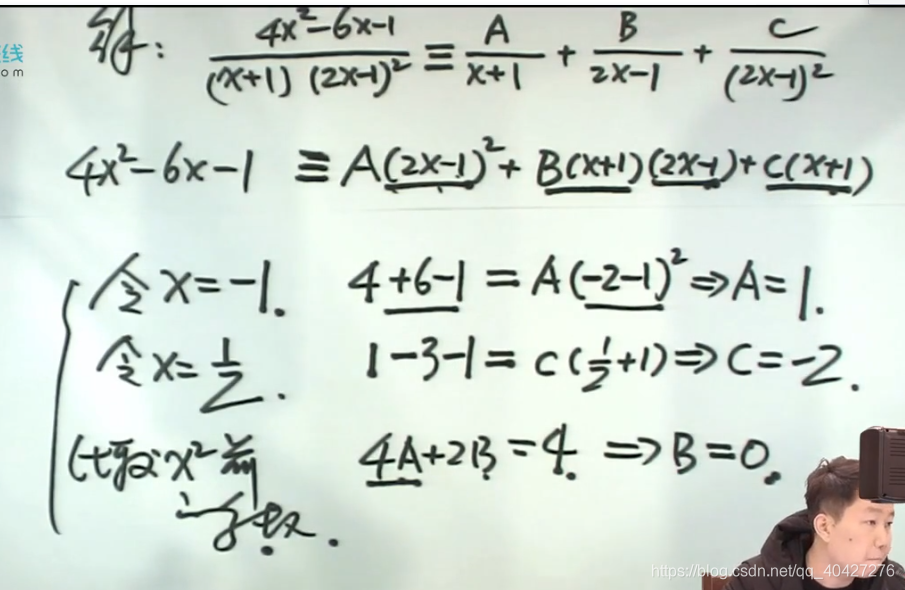 解: (4x²-6x-1)/((x+1)(2x-1)²) ≡ A/(x+1) + B/(2x-1) + C/(2x-1)²
线
om
4x²-6x-1 ≡ A(2x-1)²+ B(x+1)(2x-1)+C(x+1)
令 x=-1. 4+6-1 = A(-2-1)² ⇒ A=1.
令 x=1/2. 1-3-1= C(1/2+1) ⇒ C=-2.
比较 x² 前 4A+2B=4. ⇒ B=0.
系数.
https://blog.csdn.net/qq_40427276